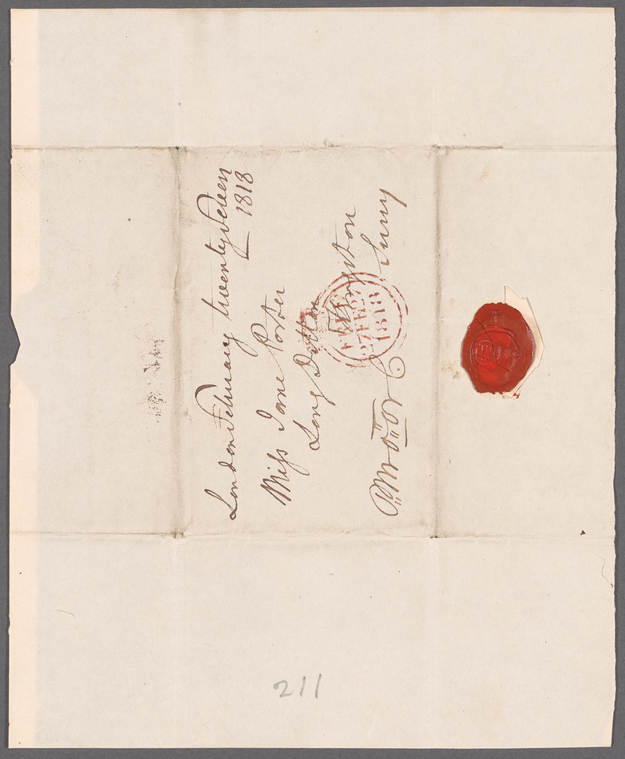 London February twenty Seven
1818
Miss Jane Porter
Long Ditton
Kingston
Surry
FREE
27 FE 27
1818
211